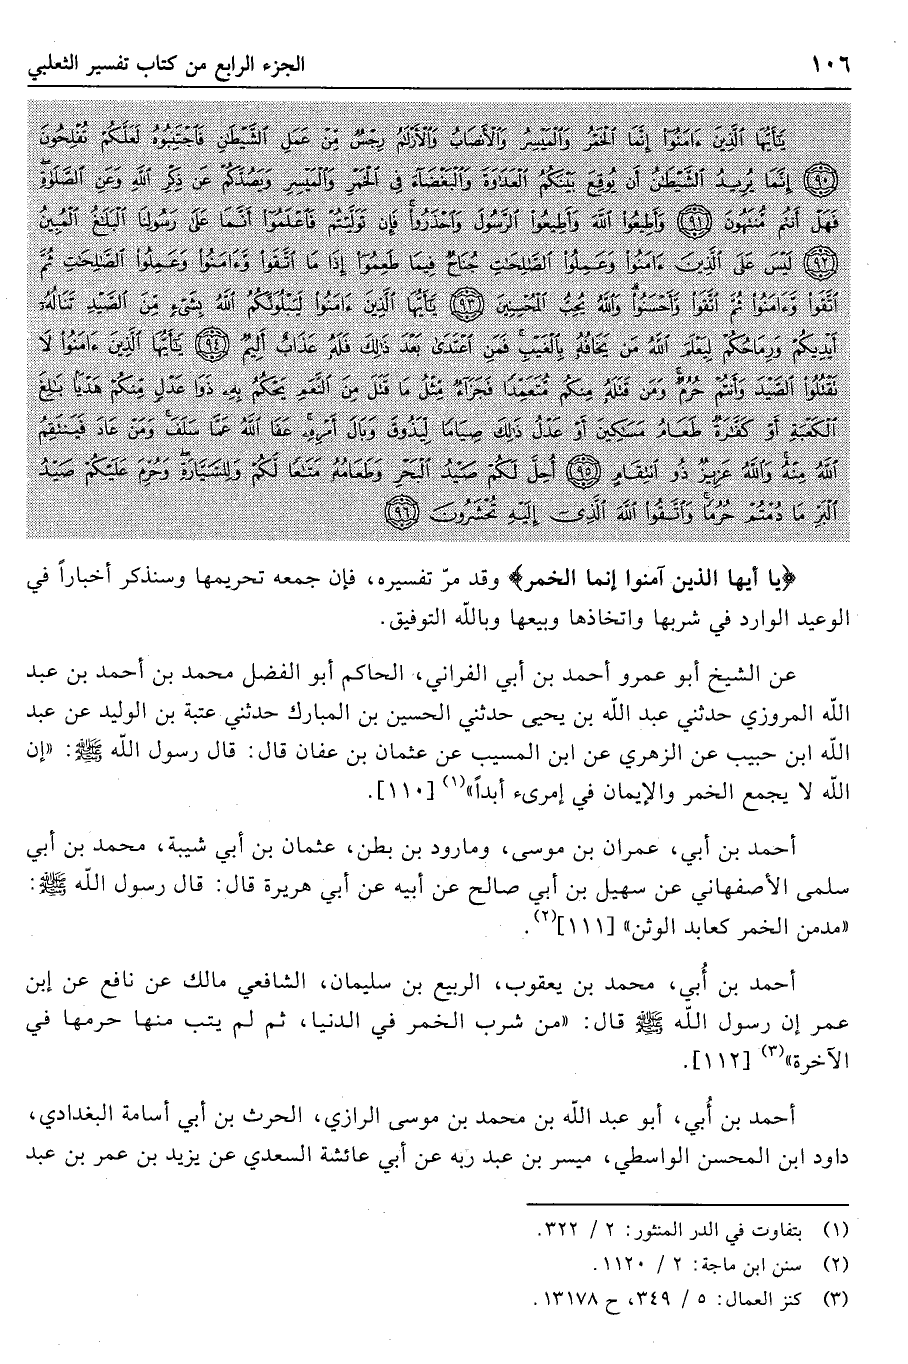 ١٠٦ الجزء الرابع من كتاب تفسير الثعلبي
يَٰٓأَيُّهَا ٱلَّذِينَ ءَامَنُوٓا۟ إِنَّمَا ٱلْخَمْرُ وَٱلْمَيْسِرُ وَٱلْأَنصَابُ وَٱلْأَزْلَٰمُ رِجْسٌ مِّنْ عَمَلِ ٱلشَّيْطَٰنِ فَٱجْتَنِبُوهُ لَعَلَّكُمْ تُفْلِحُونَ
٩٠ إِنَّمَا يُرِيدُ ٱلشَّيْطَٰنُ أَن يُوقِعَ بَيْنَكُمُ ٱلْعَدَٰوَةَ وَٱلْبَغْضَآءَ فِى ٱلْخَمْرِ وَٱلْمَيْسِرِ وَيَصُدَّكُمْ عَن ذِكْرِ ٱللَّهِ وَعَنِ ٱلصَّلَوٰةِ
فَهَلْ أَنتُم مُّنتَهُونَ ٩١ وَأَطِيعُوا۟ ٱللَّهَ وَأَطِيعُوا۟ ٱلرَّسُولَ وَٱحْذَرُوا۟ فَإِن تَوَلَّيْتُمْ فَٱعْلَمُوٓا۟ أَنَّمَا عَلَىٰ رَسُولِنَا ٱلْبَلَٰغُ ٱلْمُبِينُ
٩٢ لَيْسَ عَلَى ٱلَّذِينَ ءَامَنُوا۟ وَعَمِلُوا۟ ٱلصَّٰلِحَٰتِ جُنَاحٌ فِيمَا طَعِمُوٓا۟ إِذَا مَا ٱتَّقَوا۟ وَّءَامَنُوا۟ وَعَمِلُوا۟ ٱلصَّٰلِحَٰتِ ثُمَّ
ٱتَّقَوا۟ وَّءَامَنُوا۟ ثُمَّ ٱتَّقَوا۟ وَّأَحْسَنُوا۟ وَٱللَّهُ يُحِبُّ ٱلْمُحْسِنِينَ ٩٣ يَٰٓأَيُّهَا ٱلَّذِينَ ءَامَنُوا۟ لَيَبْلُوَنَّكُمُ ٱللَّهُ بِشَىْءٍ مِّنَ ٱلصَّيْدِ تَنَالُهُۥٓ
أَيْدِيكُمْ وَرِمَاحُكُمْ لِيَعْلَمَ ٱللَّهُ مَن يَخَافُهُۥ بِٱلْغَيْبِ فَمَنِ ٱعْتَدَىٰ بَعْدَ ذَٰلِكَ فَلَهُۥ عَذَابٌ أَلِيمٌ ٩٤ يَٰٓأَيُّهَا ٱلَّذِينَ ءَامَنُوا۟ لَا
تَقْتُلُوا۟ ٱلصَّيْدَ وَأَنتُمْ حُرُمٌ وَمَن قَتَلَهُۥ مِنكُم مُّتَعَمِّدًا فَجَزَآءٌ مِّثْلُ مَا قَتَلَ مِنَ ٱلنَّعَمِ يَحْكُمُ بِهِۦ ذَوَا عَدْلٍ مِّنكُمْ هَدْيًۢا بَٰلِغَ
ٱلْكَعْبَةِ أَوْ كَفَّٰرَةٌ طَعَامُ مَسَٰكِينَ أَوْ عَدْلُ ذَٰلِكَ صِيَامًا لِّيَذُوقَ وَبَالَ أَمْرِهِۦ عَفَا ٱللَّهُ عَمَّا سَلَفَ وَمَنْ عَادَ فَيَنتَقِمُ
ٱللَّهُ مِنْهُ وَٱللَّهُ عَزِيزٌ ذُو ٱنتِقَامٍ ٩٥ أُحِلَّ لَكُمْ صَيْدُ ٱلْبَحْرِ وَطَعَامُهُۥ مَتَٰعًا لَّكُمْ وَلِلسَّيَّارَةِ وَحُرِّمَ عَلَيْكُمْ صَيْدُ
ٱلْبَرِّ مَا دُمْتُمْ حُرُمًا وَٱتَّقُوا۟ ٱللَّهَ ٱلَّذِىٓ إِلَيْهِ تُحْشَرُونَ ٩٦
﴿يا أيها الذين آمنوا إنما الخمر﴾ وقد مرّ تفسيره، فإن جمعه تحريمها وسنذكر أخباراً في
الوعيد الوارد في شربها واتخاذها وبيعها وباللّه التوفيق.
عن الشيخ أبو عمرو أحمد بن أبي الفراني، الحاكم أبو الفضل محمد بن أحمد بن عبد
اللّه المروزي حدثني عبد اللّه بن يحيى حدثني الحسين بن المبارك حدثني عتبة بن الوليد عن عبد
اللّه ابن حبيب عن الزهري عن ابن المسيب عن عثمان بن عفان قال: قال رسول اللّه ﷺ: «إن
اللّه لا يجمع الخمر والإيمان في إمرىء أبداً»(١) [١١٠].
أحمد بن أبي، عمران بن موسى، ومارود بن بطن، عثمان بن أبي شيبة، محمد بن أبي
سلمى الأصفهاني عن سهيل بن أبي صالح عن أبيه عن أبي هريرة قال: قال رسول اللّه ﷺ:
«مدمن الخمر كعابد الوثن» [١١١](٢).
أحمد بن أُبي، محمد بن يعقوب، الربيع بن سليمان، الشافعي مالك عن نافع عن إبن
عمر إن رسول اللّه ﷺ قال: «من شرب الخمر في الدنيا، ثم لم يتب منها حرمها في
الآخرة»(٣) [١١٢].
أحمد بن أُبي، أبو عبد اللّه بن محمد بن موسى الرازي، الحرث بن أبي أسامة البغدادي،
داود ابن المحسن الواسطي، ميسر بن عبد ربه عن أبي عائشة السعدي عن يزيد بن عمر بن عبد
(١) بتفاوت في الدر المنثور: ٢ / ٣٢٢.
(٢) سنن ابن ماجة: ٢ / ١١٢٠.
(٣) كنز العمال: ٥ / ٣٤٩، ح ١٣١٧٨.